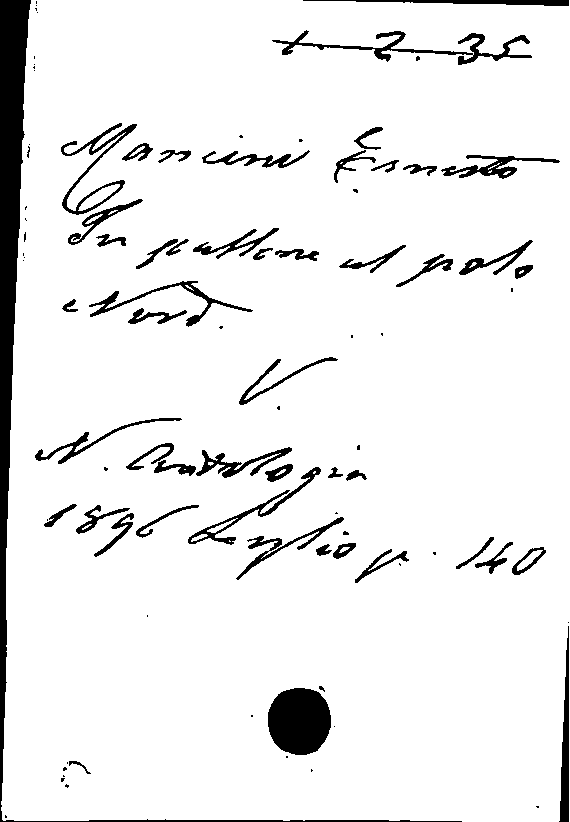 1. 2. 35
Mancini Ernesto
In pallone al polo
Nord.
V.
N. Antologia
1896 Luglio p. 140